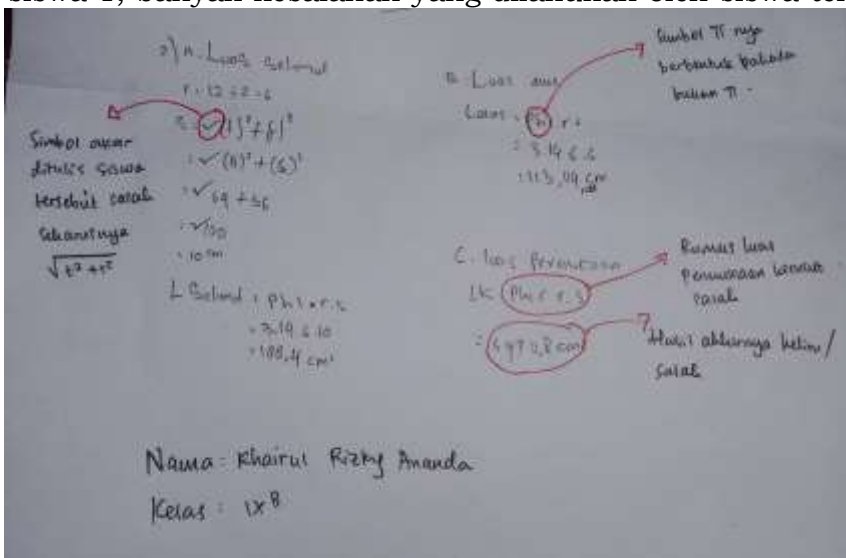 siswa 1, banyak kesalahan yang dilakukan oleh siswa ter
2) A. Luas Selimut
r = 12 : 2 = 6
: √(8)² + (6)²
: √64 + 36
: √100
: 10 cm
L Selimut : Phi . r . s
: 3.14 6 10
: 188,4 cm²
Simbol akar
ditulis siswa
tersebut salah
seharusnya
B Luas alas
Luas : Phi r
: 3.14 6 6
: 113,04 cm
Simbol π nya
berbentuk bahasa
bukan π .
C. luas Permukaan
LK Phi r r . s
Rumus luas
Permukaan kerucut
salah
Hasil akhirnya keliru /
salah
Nama : Khairul Rizky Ananda
Kelas : IX 8